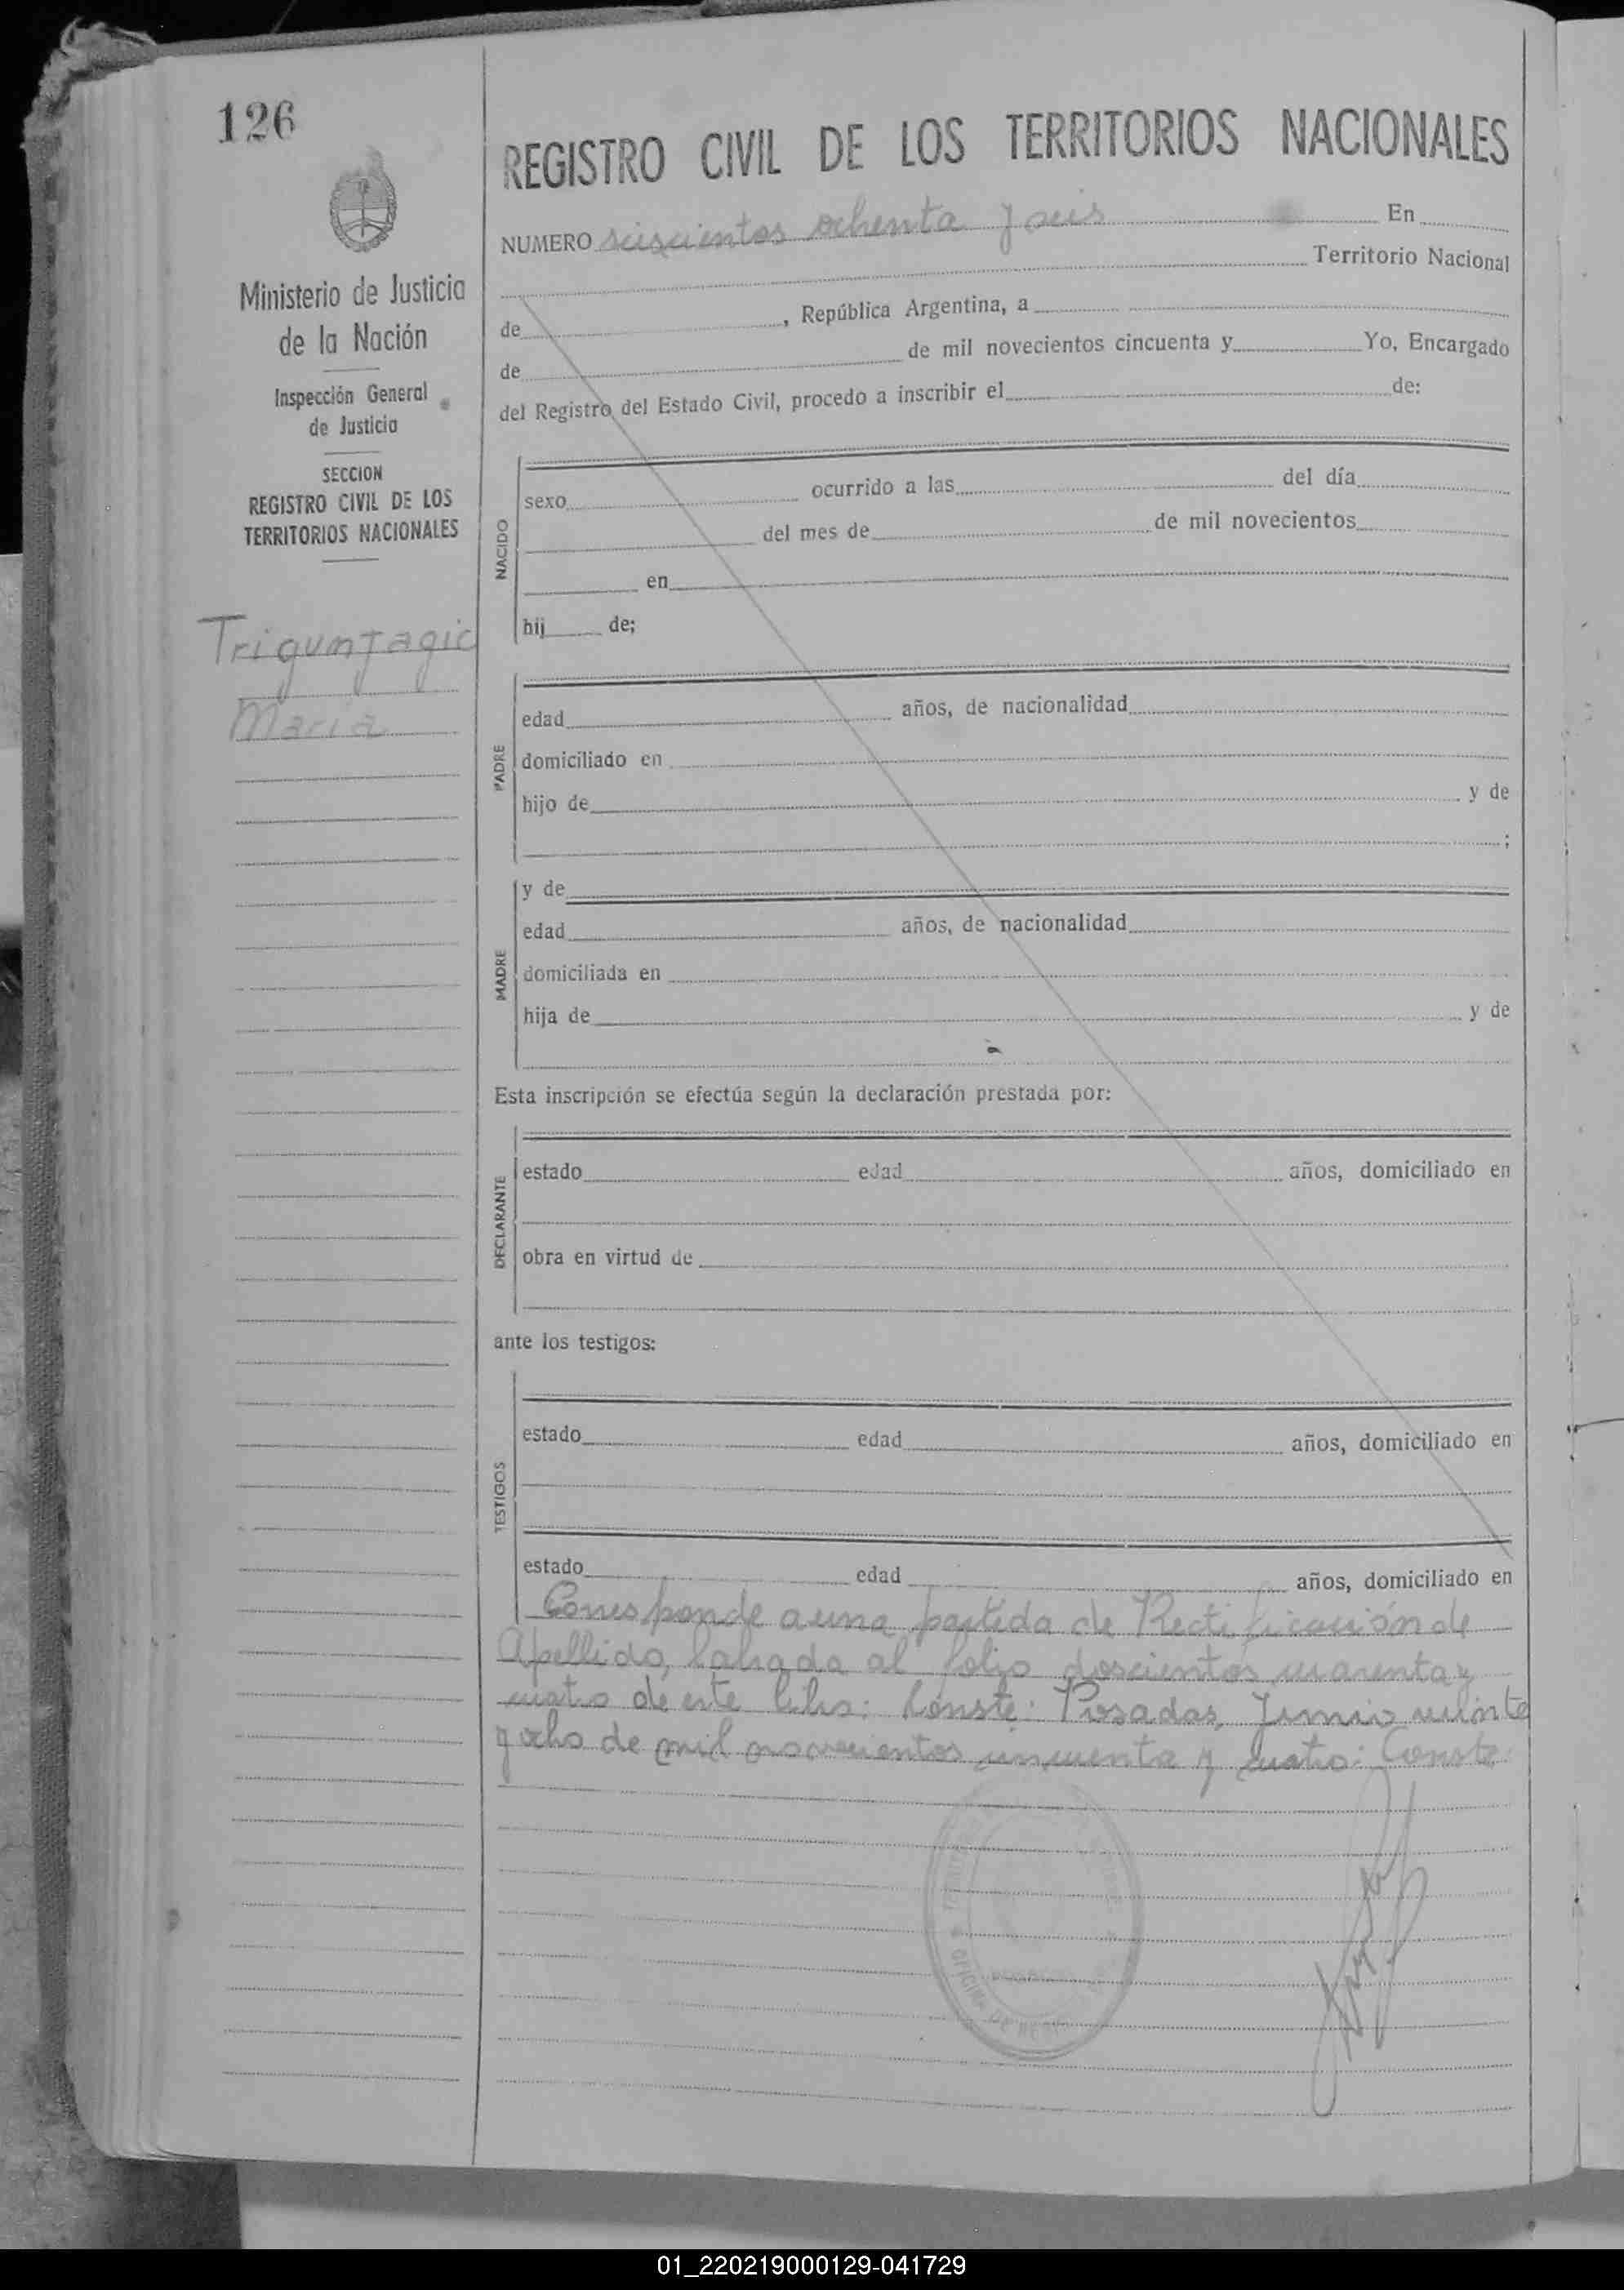 126
Ministerio de Justicia
de la Nación
Inspección General
de Justicia
SECCION
REGISTRO CIVIL DE LOS
TERRITORIOS NACIONALES
María
REGISTRO CIVIL DE LOS TERRITORIOS NACIONALES
NUMERO seiscientos ochenta y seis En
Territorio Nacional
de , República Argentina, a
de de mil novecientos cincuenta y Yo, Encargado
del Registro del Estado Civil, procedo a inscribir el de:
NACIDO
sexo ocurrido a las del día
del mes de de mil novecientos
en
hij de;
PADRE
edad años, de nacionalidad
domiciliado en
hijo de y de
;
MADRE
y de
edad años, de nacionalidad
domiciliada en
hija de y de
Esta inscripción se efectúa según la declaración prestada por:
DECLARANTE
estado edad años, domiciliado en
obra en virtud de
ante los testigos:
TESTIGOS
estado edad años, domiciliado en
estado edad años, domiciliado en
Corresponde a una partida de Rectificación de
Apellido, labrada al folio doscientos cuarenta y
cuatro de este libro: Conste: Posadas, Junio veinte
y ocho de mil novecientos cincuenta y cuatro: Conste
OFICINA DE
01_220219000129-041729